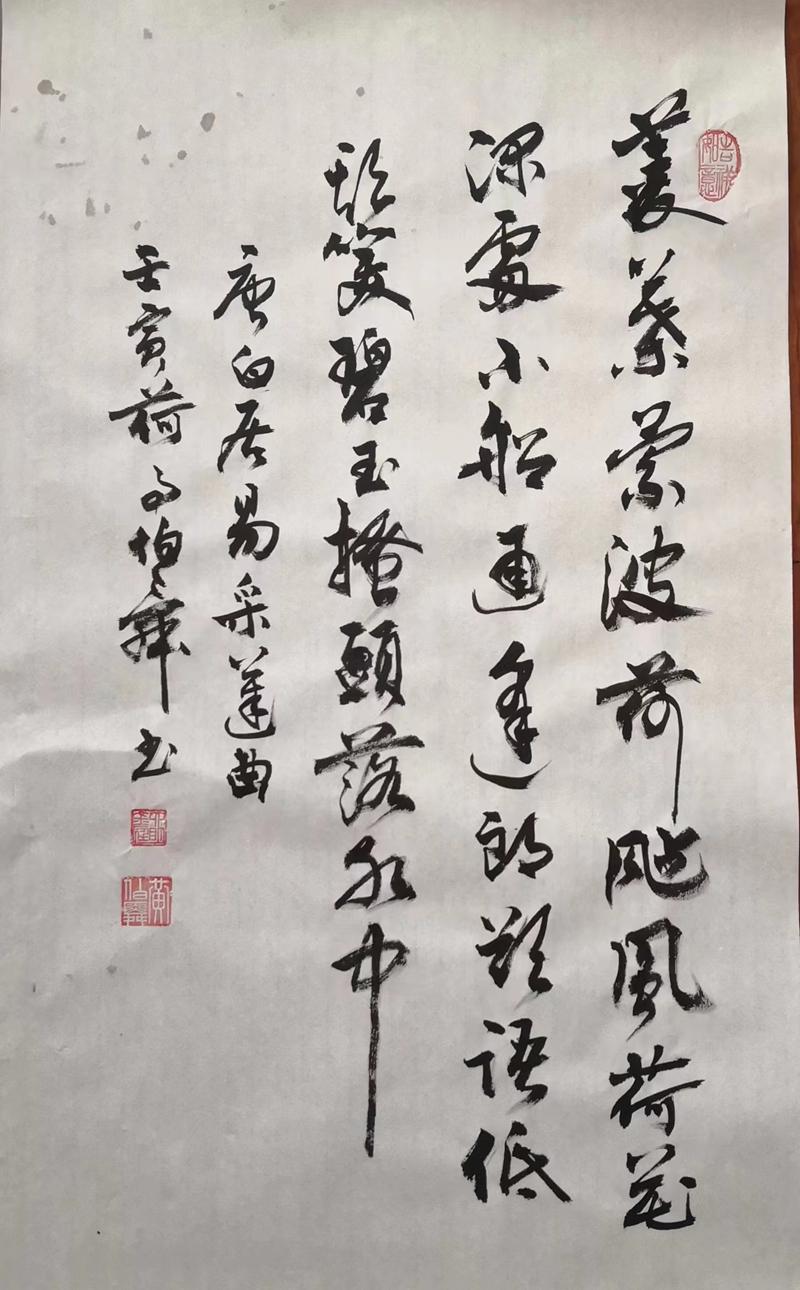 吉祥如意
菱葉縈波荷颭風荷花
深處小船通逢郎欲語低
頭笑碧玉搔頭落水中
唐白居易采蓮曲
壬寅荷月伯舜书